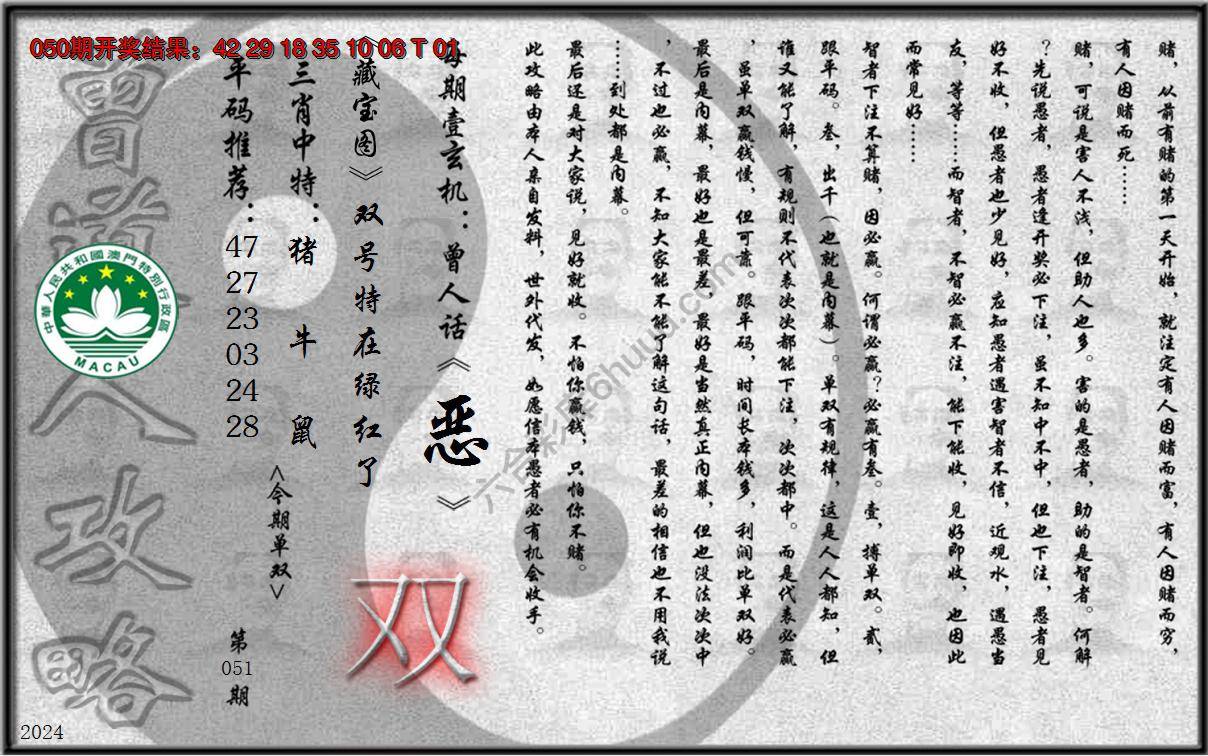 050期开奖结果：42 29 18 35 10 06 T 01
赌，从前有赌的第一天开始，就注定有人因赌而富，有人因赌而穷，
有人因赌而死……
赌，可说是害人不浅，但助人也多。害的是愚者，助的是智者。何解
？先说愚者，愚者逢开奖必下注，虽不知中不中，但也下注，愚者见
好不收，但愚者也少见好，应知愚者遇害智者不信，近观水，遇愚当
友，等等……而智者，不智必赢不注，能下能收，见好即收，也因此
而常见好……
智者下注不算赌，因必赢。何谓必赢？必赢有叁。壹，搏单双。贰，
跟平码。叁，出千（也就是内幕）。单双有规律，这是人人都知，但
谁又能了解，有规则不代表次次都能下注，次次都中。而是代表必赢
，虽单双赢钱慢，但可靠。跟平码，时间长本钱多，利润比单双好。
最后是内幕，最好也是最差，最好是当然真正内幕，但也没法次次中
，不过也必赢，不知大家能不能了解这句话，最差的相信也不用我说
……到处都是内幕。
最后还是对大家说，见好就收。不怕你赢钱，只怕你不赌。
此攻略由本人亲自发料，世外代发，如愿信本愚者必有机会收手。
每期壹玄机：曾人话《恶》
《藏宝图》双号特在绿红了
双
三肖中特：猪 牛 鼠
<今期单双>
平码推荐：
47
27
23
03
24
28
第
051
期
曾道人攻略
中華人民共和國澳門特別行政區
MACAU
六合彩库6huuu.com
2024